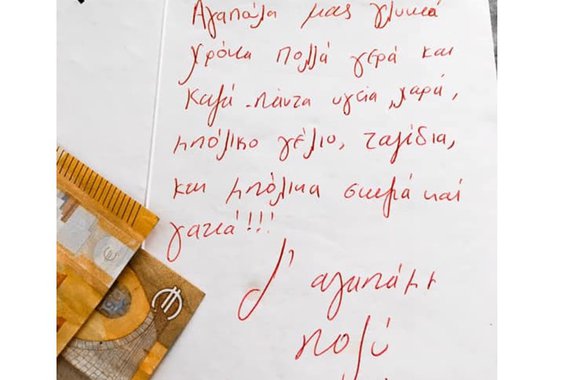 Αγαπούλα μας γλυκιά
χρόνια πολλά γερά και
καλά - πάντα υγεία, χαρά,
μπόλικο γέλιο, ταξίδια,
και μπόλικα σκυλιά και
γατιά!!!
Σ' αγαπάμε
πολύ
€